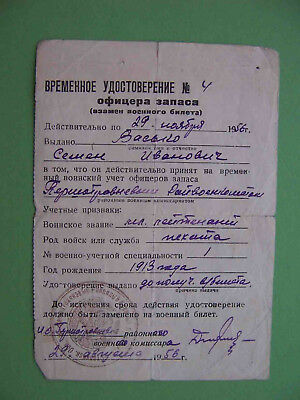 ВРЕМЕННОЕ УДОСТОВЕРЕНИЕ № 4
офицера запаса
(взамен военного билета)
Действительно по 29 ноября 1956 г.
Выдано Васько
фамилия имя и отчество
Семен Иванович
в том, что он действительно принят на времен-
ный воинский учет офицеров запаса
Райвоенкоматом
районным военным комиссариатом
Учетные признаки:
Воинское звание мл. лейтенант
Род войск или служба пехота
№ военно-учетной специальности 1
Год рождения 1913 года
Удостоверение выдано до получ. в/билета
причина выдачи
До истечения срока действия удостоверение
должно быть заменено на военный билет.
районного
военного комиссара
29 августа 1956 г.